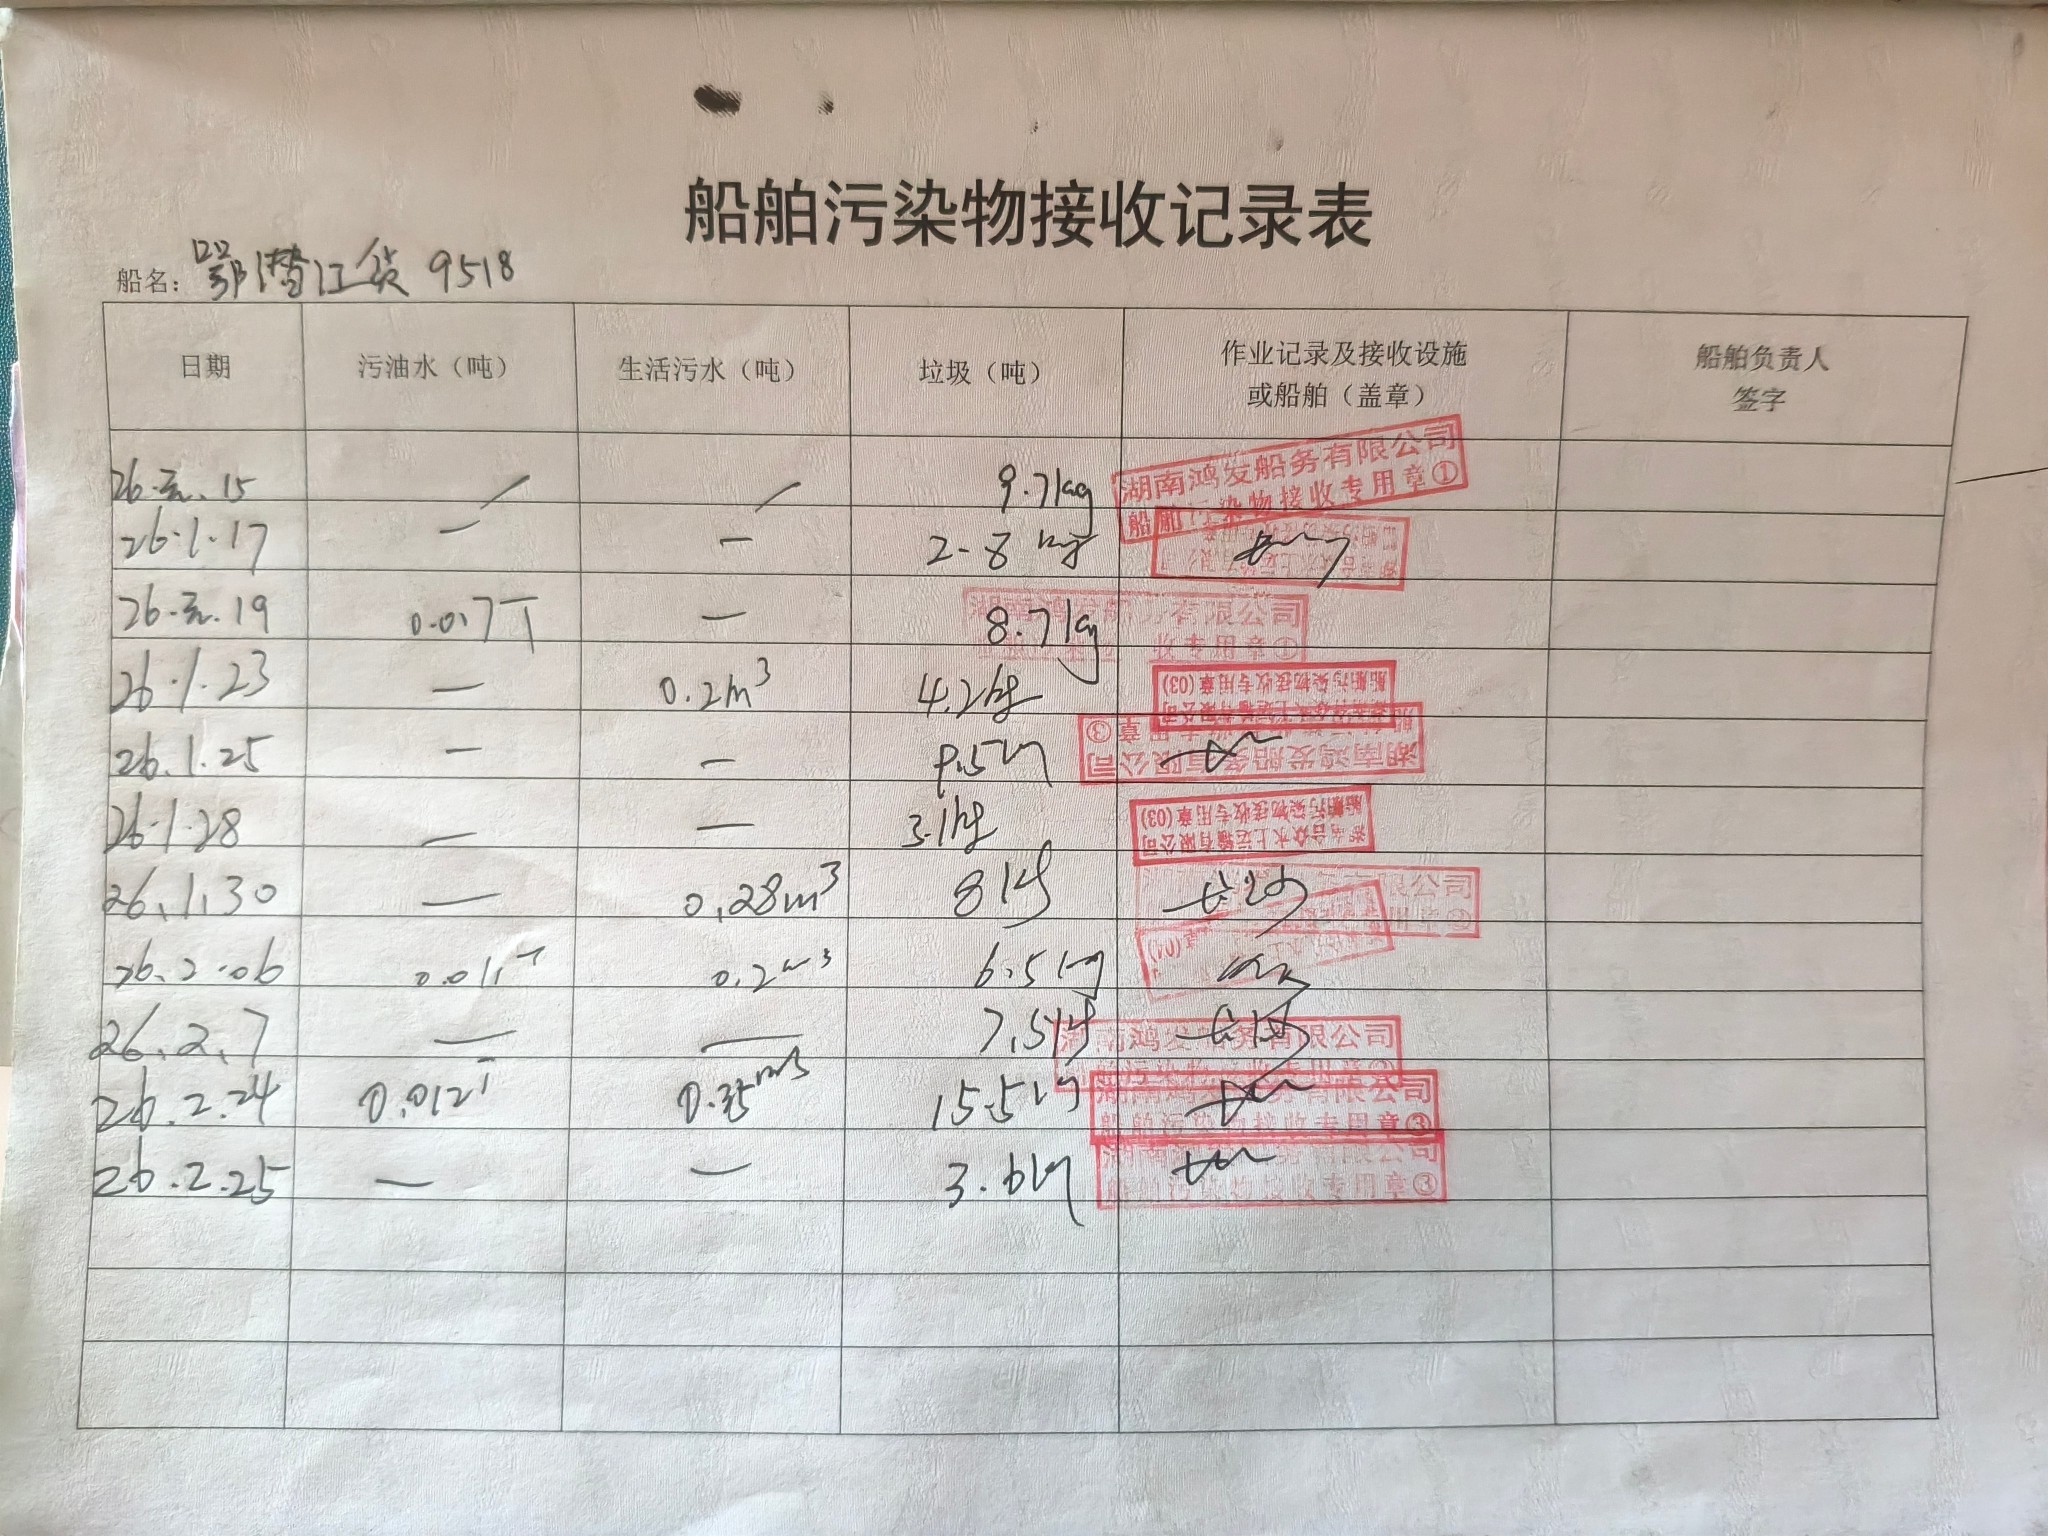 船舶污染物接收记录表
船名：鄂潜江货 9518
日期 污油水（吨） 生活污水（吨） 垃圾（吨） 作业记录及接收设施或船舶（盖章） 船舶负责人签字
26.元.15 / / 9.7kg
湖南鸿发船务有限公司
船舶污染物接收专用章①
26.1.17 — — 2.8kg
26.元.19 0.017T — 8.7kg
湖南鸿发船务有限公司
收专用章①
26.1.23 — 0.2m³ 4.2kg
船舶污染物接收专用章(03)
26.1.25 — — 9.5kg
湖南鸿发船务有限公司
章③
26.1.28 — — 3.1kg
船舶污染物接收专用章(03)
水上运输有限公司
26.1.30 — 0.28m³ 8kg
限公司
26.2.06 0.01T 0.2m³ 6.5kg
26.2.7 — — 7.5kg
湖南鸿发船务有限公司
26.2.24 0.012T 0.35m³ 15.5kg
湖南鸿发船务有限公司
船舶污染物接收专用章③
26.2.25 — — 3.6kg
湖南鸿发船务有限公司
船舶污染物接收专用章③